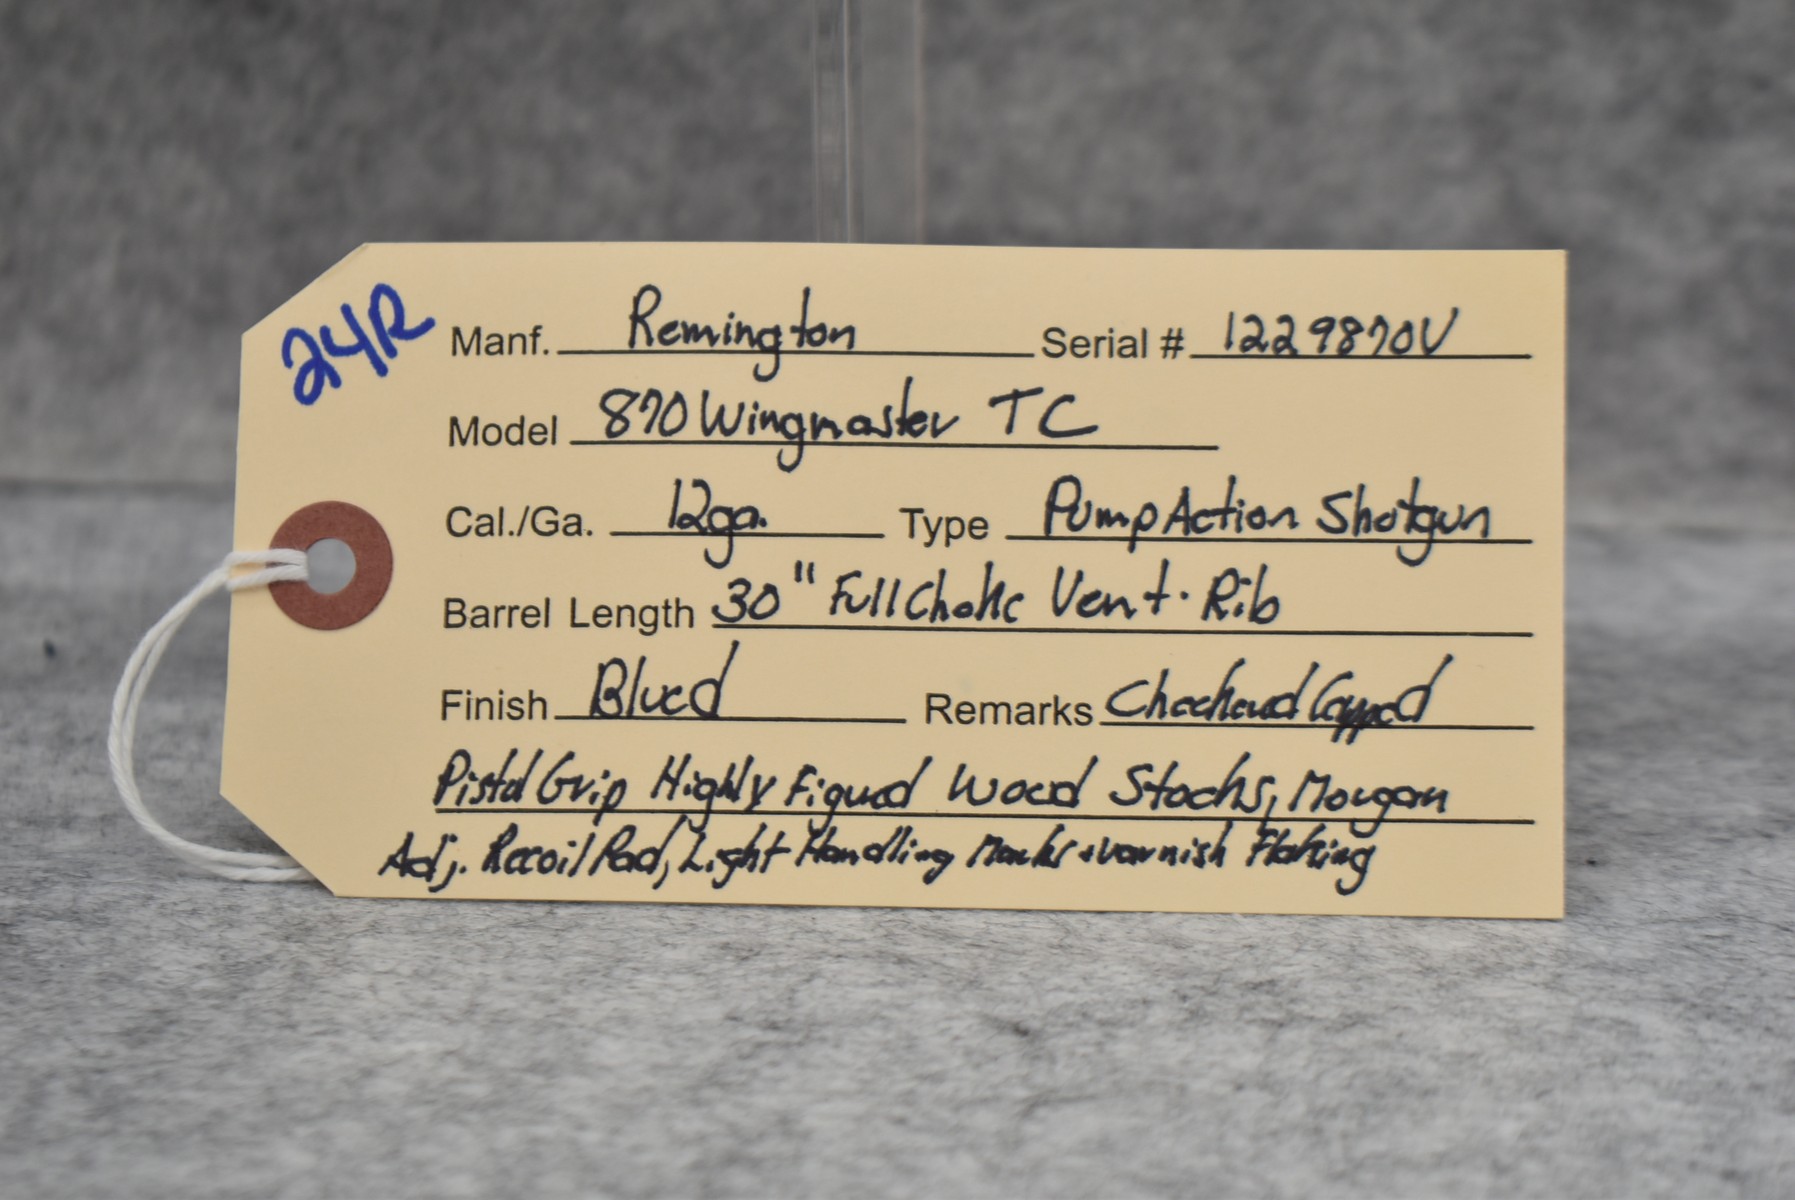 24R
Manf. Remington Serial # 1229870V
Model 870 Wingmaster TC
Cal./Ga. 12ga. Type Pump Action Shotgun
Barrel Length 30" Full Choke Vent. Rib
Finish Blued Remarks Checkered Capped
Pistol Grip Highly Figued Wood Stocks, Morgan
Adj. Recoil Pad, Light Handling Marks + varnish Flaking